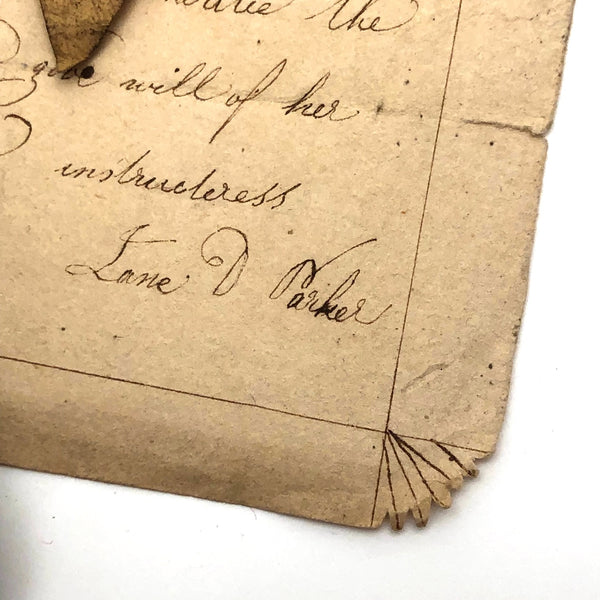 the
give will of her
instructress
Jane D Parker